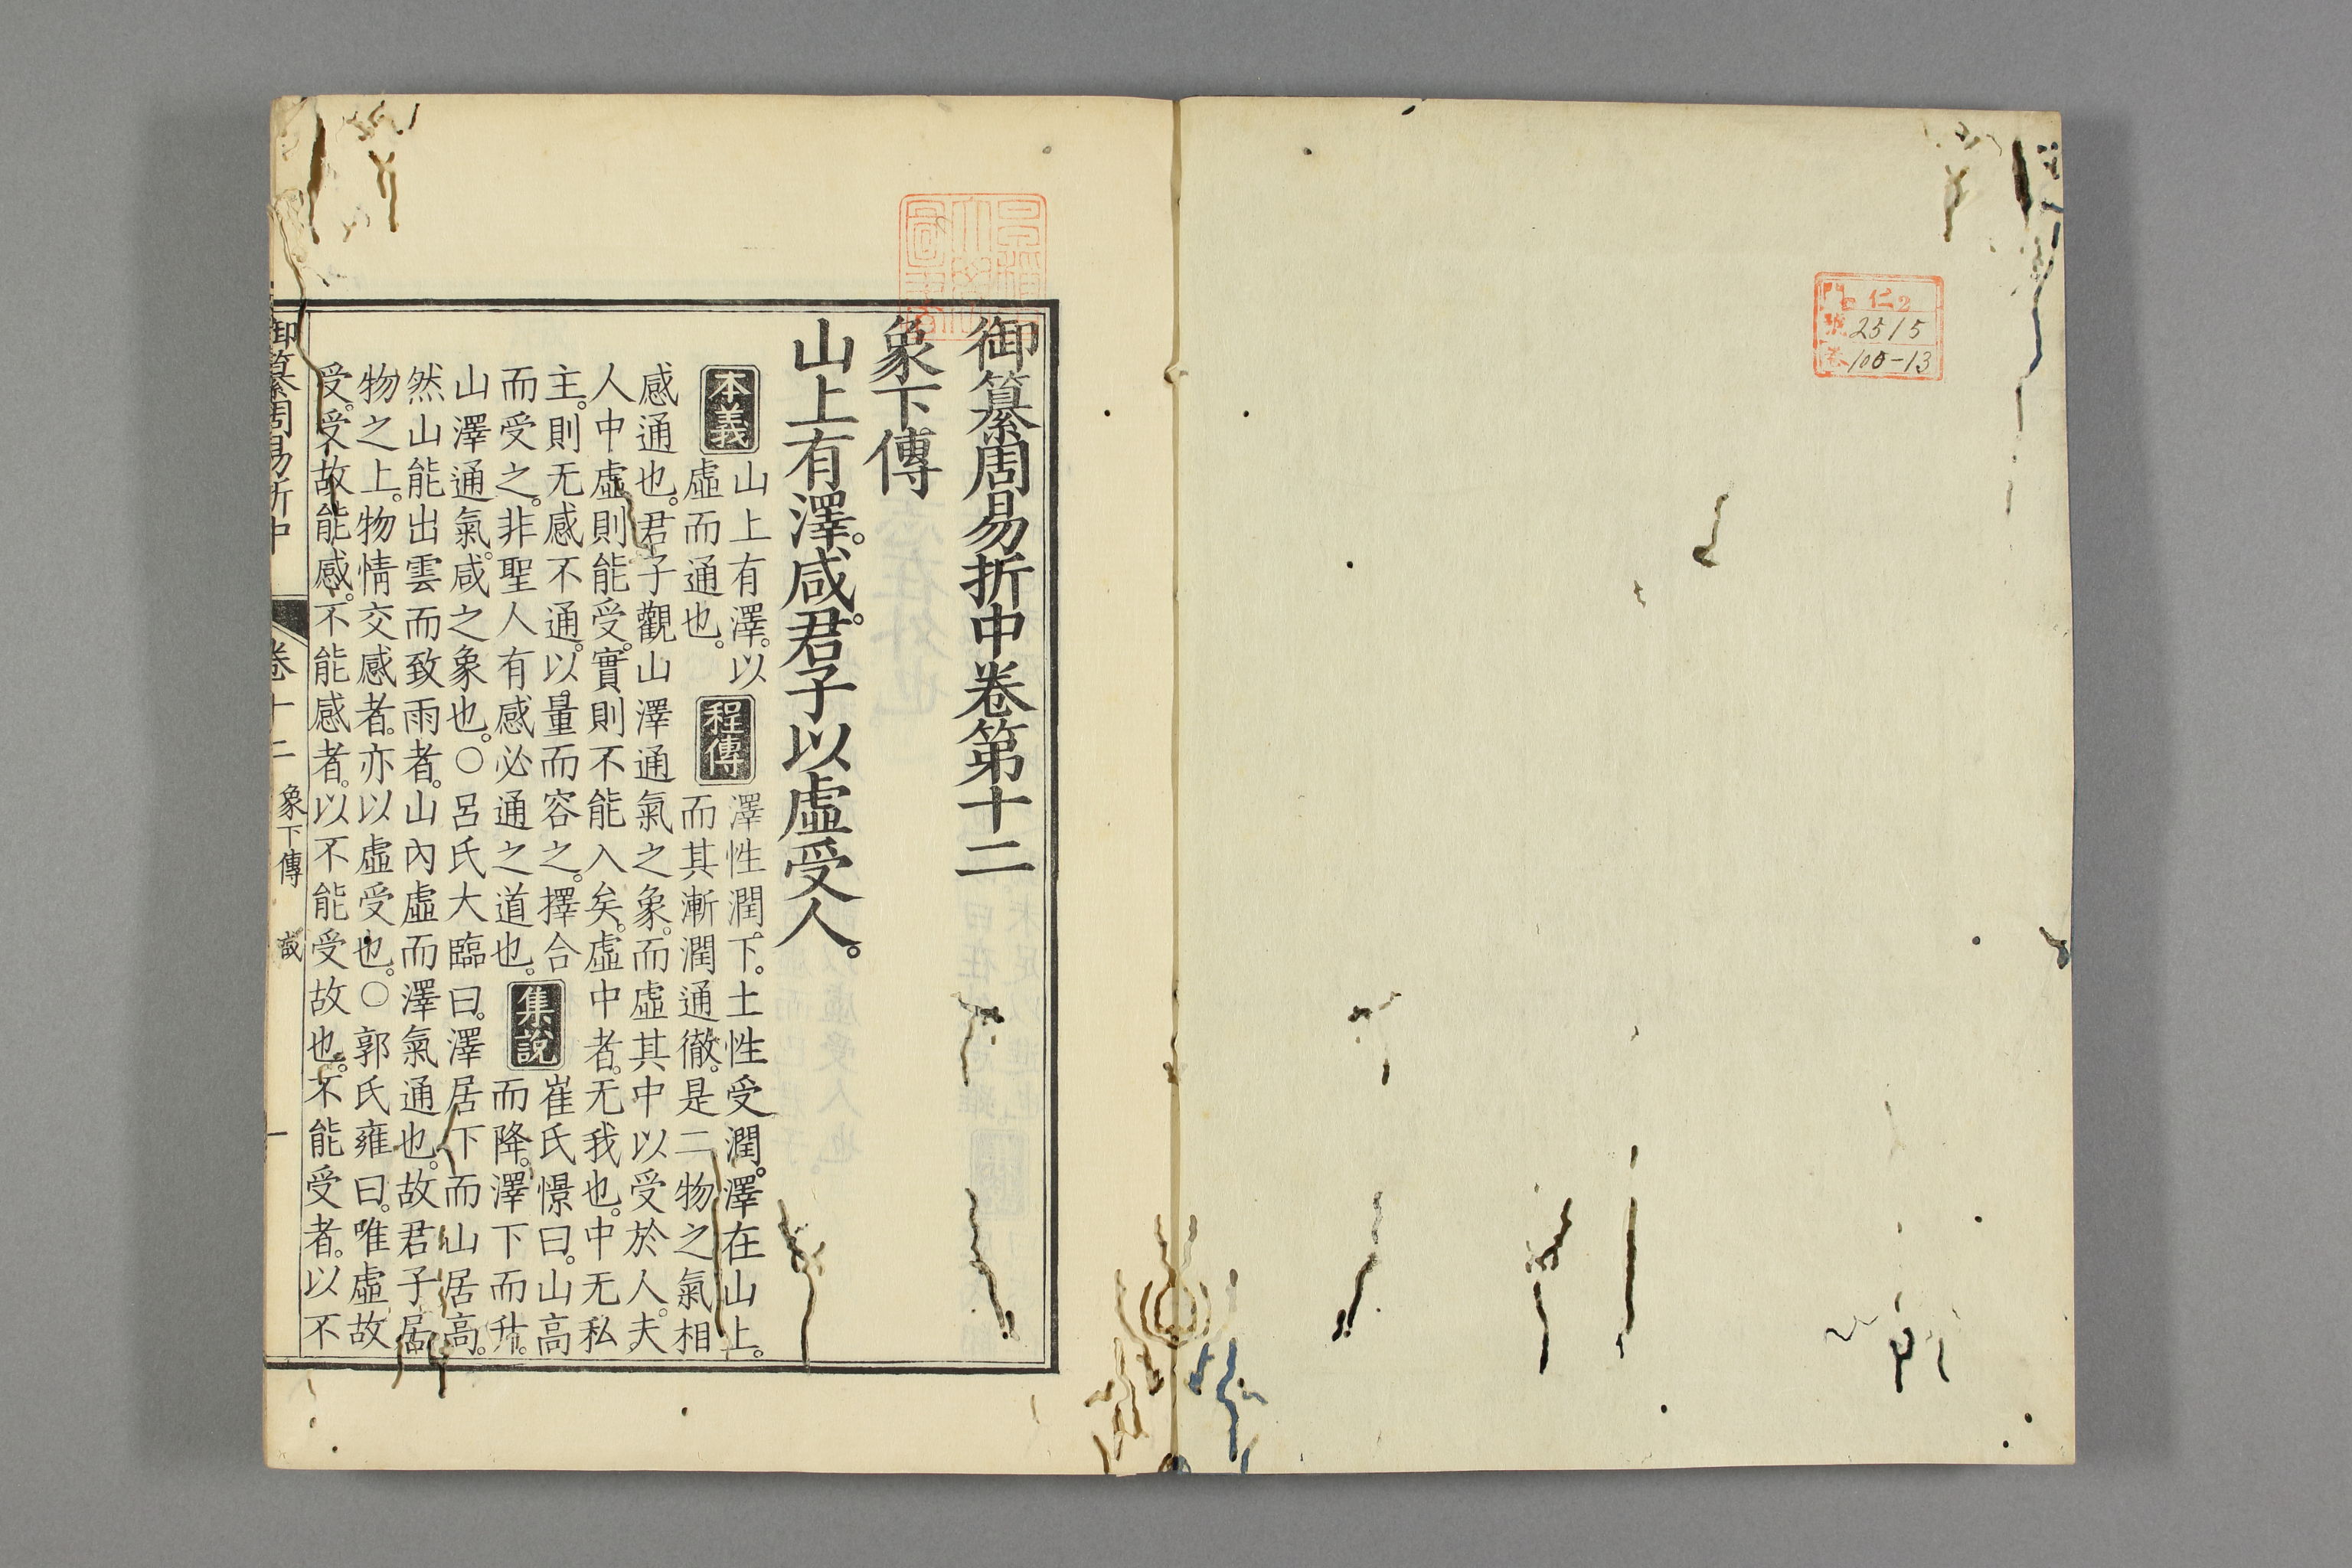 仁2
號 2515
御纂周易折中卷第十二
象下傳
山上有澤。咸。君子以虛受人。
本義
山上有澤。以
虛而通也。
程傳
澤性潤下。土性受潤。澤在山上。
而其漸潤通徹。是二物之氣相
感通也。君子觀山澤通氣之象。而虛其中以受於人。夫
人中虛則能受。實則不能入矣。虛中者。无我也。中无私
主。則无感不通。以量而容之。擇合
而受之。非聖人有感必通之道也。
集說
崔氏憬曰。山高
而降。澤下而升。
山澤通氣。咸之象也。○呂氏大臨曰。澤居下而山居高。
然山能出雲而致雨者。山內虛而澤氣通也。故君子居
物之上。物情交感者。亦以虛受也。○郭氏雍曰。唯虛故
受。受故能感。不能感者。以不能受故也。不能受者。以不
御纂周易折中 卷十二 象下傳 咸 一